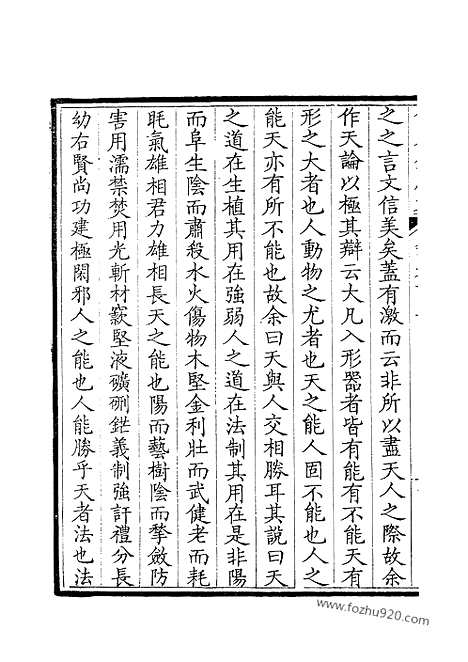 之之言文信美矣蓋有激而云非所以盡天人之際故余
作天論以極其辯云大凡入形器者皆有能有不能天有
形之大者也人動物之尤者也天之能人固不能也人之
能天亦有所不能也故余曰天與人交相勝耳其說曰天
之道在生植其用在強弱人之道在法制其用在是非陽
而阜生陰而肅殺水火傷物木堅金利壯而武健老而耗
眊氣雄相君力雄相長天之能也陽而藝樹陰而揫斂防
害用濡禁焚用光斬材窾堅液礦硎鋩義制強訐禮分長
幼右賢尚功建極閑邪人之能也人能勝乎天者法也法
www.fozhu920.com